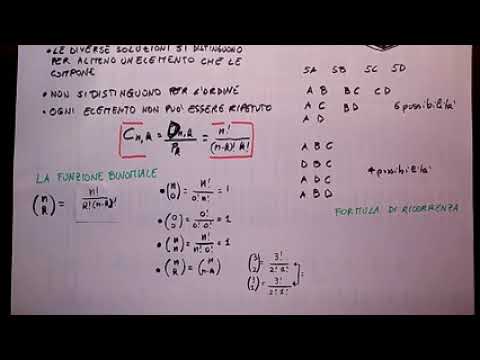 • LE DIVERSE SOLUZIONI SI DISTINGUONO
PER ALMENO UN ELEMENTO CHE LE
COMPONE
• NON SI DISTINGUONO PER L'ORDINE
• OGNI ELEMENTO NON PUO' ESSERE RIPETUTO
C n,k = D n,k / P k = n! / (n-k)! k!
LA FUNZIONE BINOMIALE
(n k) = n! / k!(n-k)!
• (n 0) = n! / 0! n! = 1
• (0 0) = 0! / 0! 0! = 1
• (n n) = n! / n! 0! = 1
• (n k) = (n n-k)
(3 2) = 3! / 2! 1!
(3 1) = 3! / 2! 1!
SA SB SC SD
A B B C C D
A C B D 6 possibilita'
A D
A B C
D B C 4 possibilita'
A D C
A B D
FORMULA DI RICORRENZA